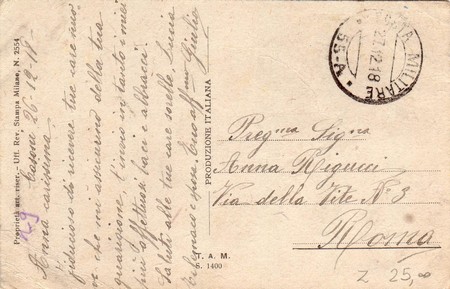 Proprietà art. riser. - Uff. Rev. Stampa Milano, N. 2554
Casoni 26-12-18-
Anna carissima.
fiducioso di ricevere tue care nuo-
ve che mi assicurino della tua
guarigione t'invio intanto i miei
più affettuosi baci e abbracci.
Saluti alle tue care sorelle, Livia
e credimi per tuo aff.mo Giulio
29
PRODUZIONE ITALIANA
T. A. M.
S. 1400
POSTA MILITARE
27.12.18
* 55-A *
Preg.ma Sig.na
Anna Rigucci
Via della Vite N° 3
Roma
Z 25,00